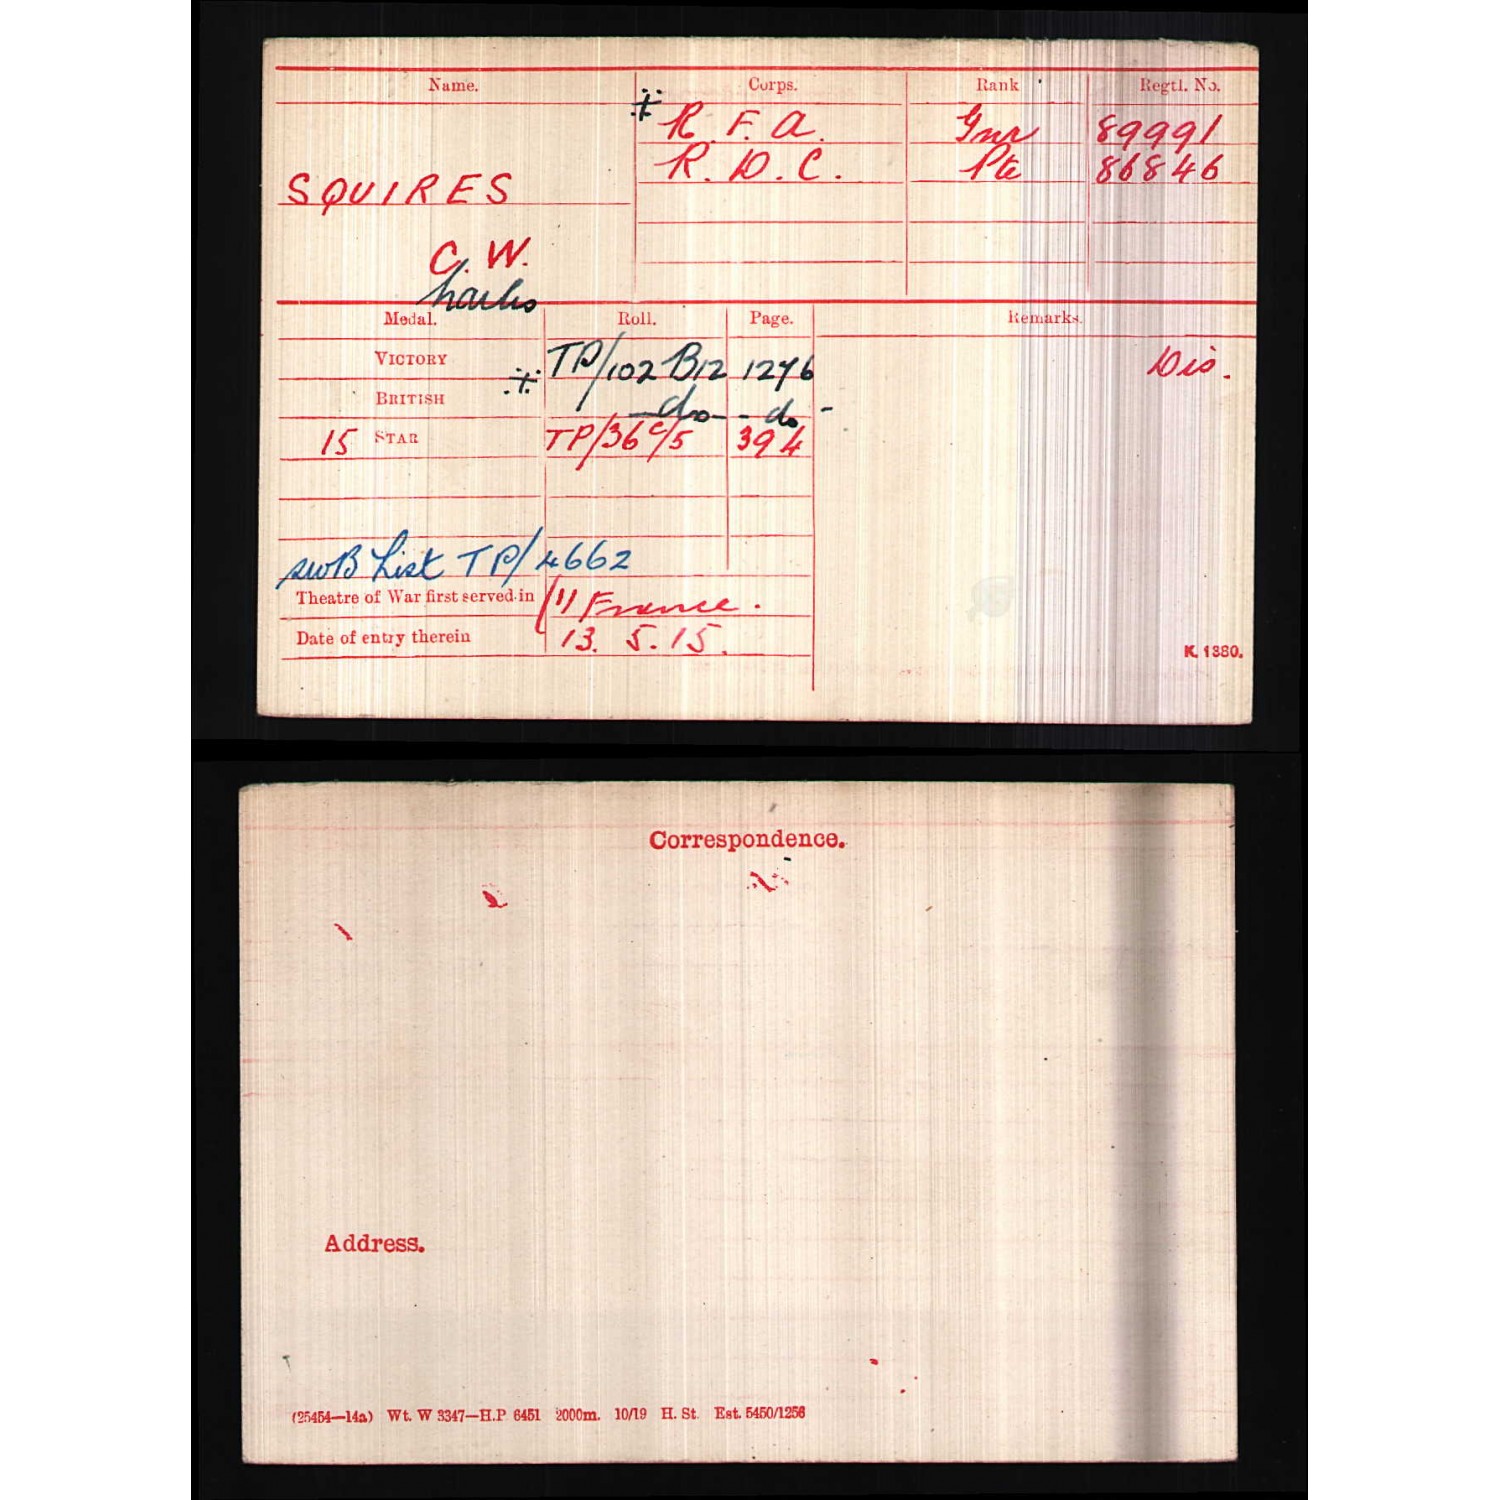 Name. Corps. Rank Regtl. No.
R. F. A. Gnr 89991
R. D. C. Pte 86846
SQUIRES
C. W.
harles
Medal. Roll. Page. Remarks.
VICTORY TP/102 B12 1276 Dis.
BRITISH do - do -
15 STAR TP/36 C/5 394
SWB List TP/4662
Theatre of War first served in (1) France.
Date of entry therein 13. 5. 15.
K. 1380.
Correspondence.
Address.
(25454—14a) Wt. W 3347—H.P 6451 2000m. 10/19 H. St. Est. 5450/1256